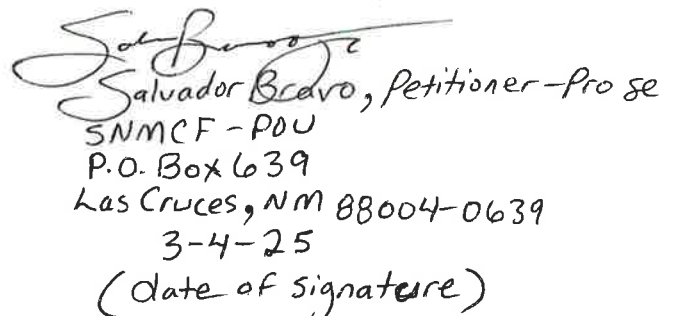 Salvador Bravo, Petitioner-Pro se
SNMCF-POU
P.O. Box 639
Las Cruces, NM 88004-0639
3-4-25
(date of signature)